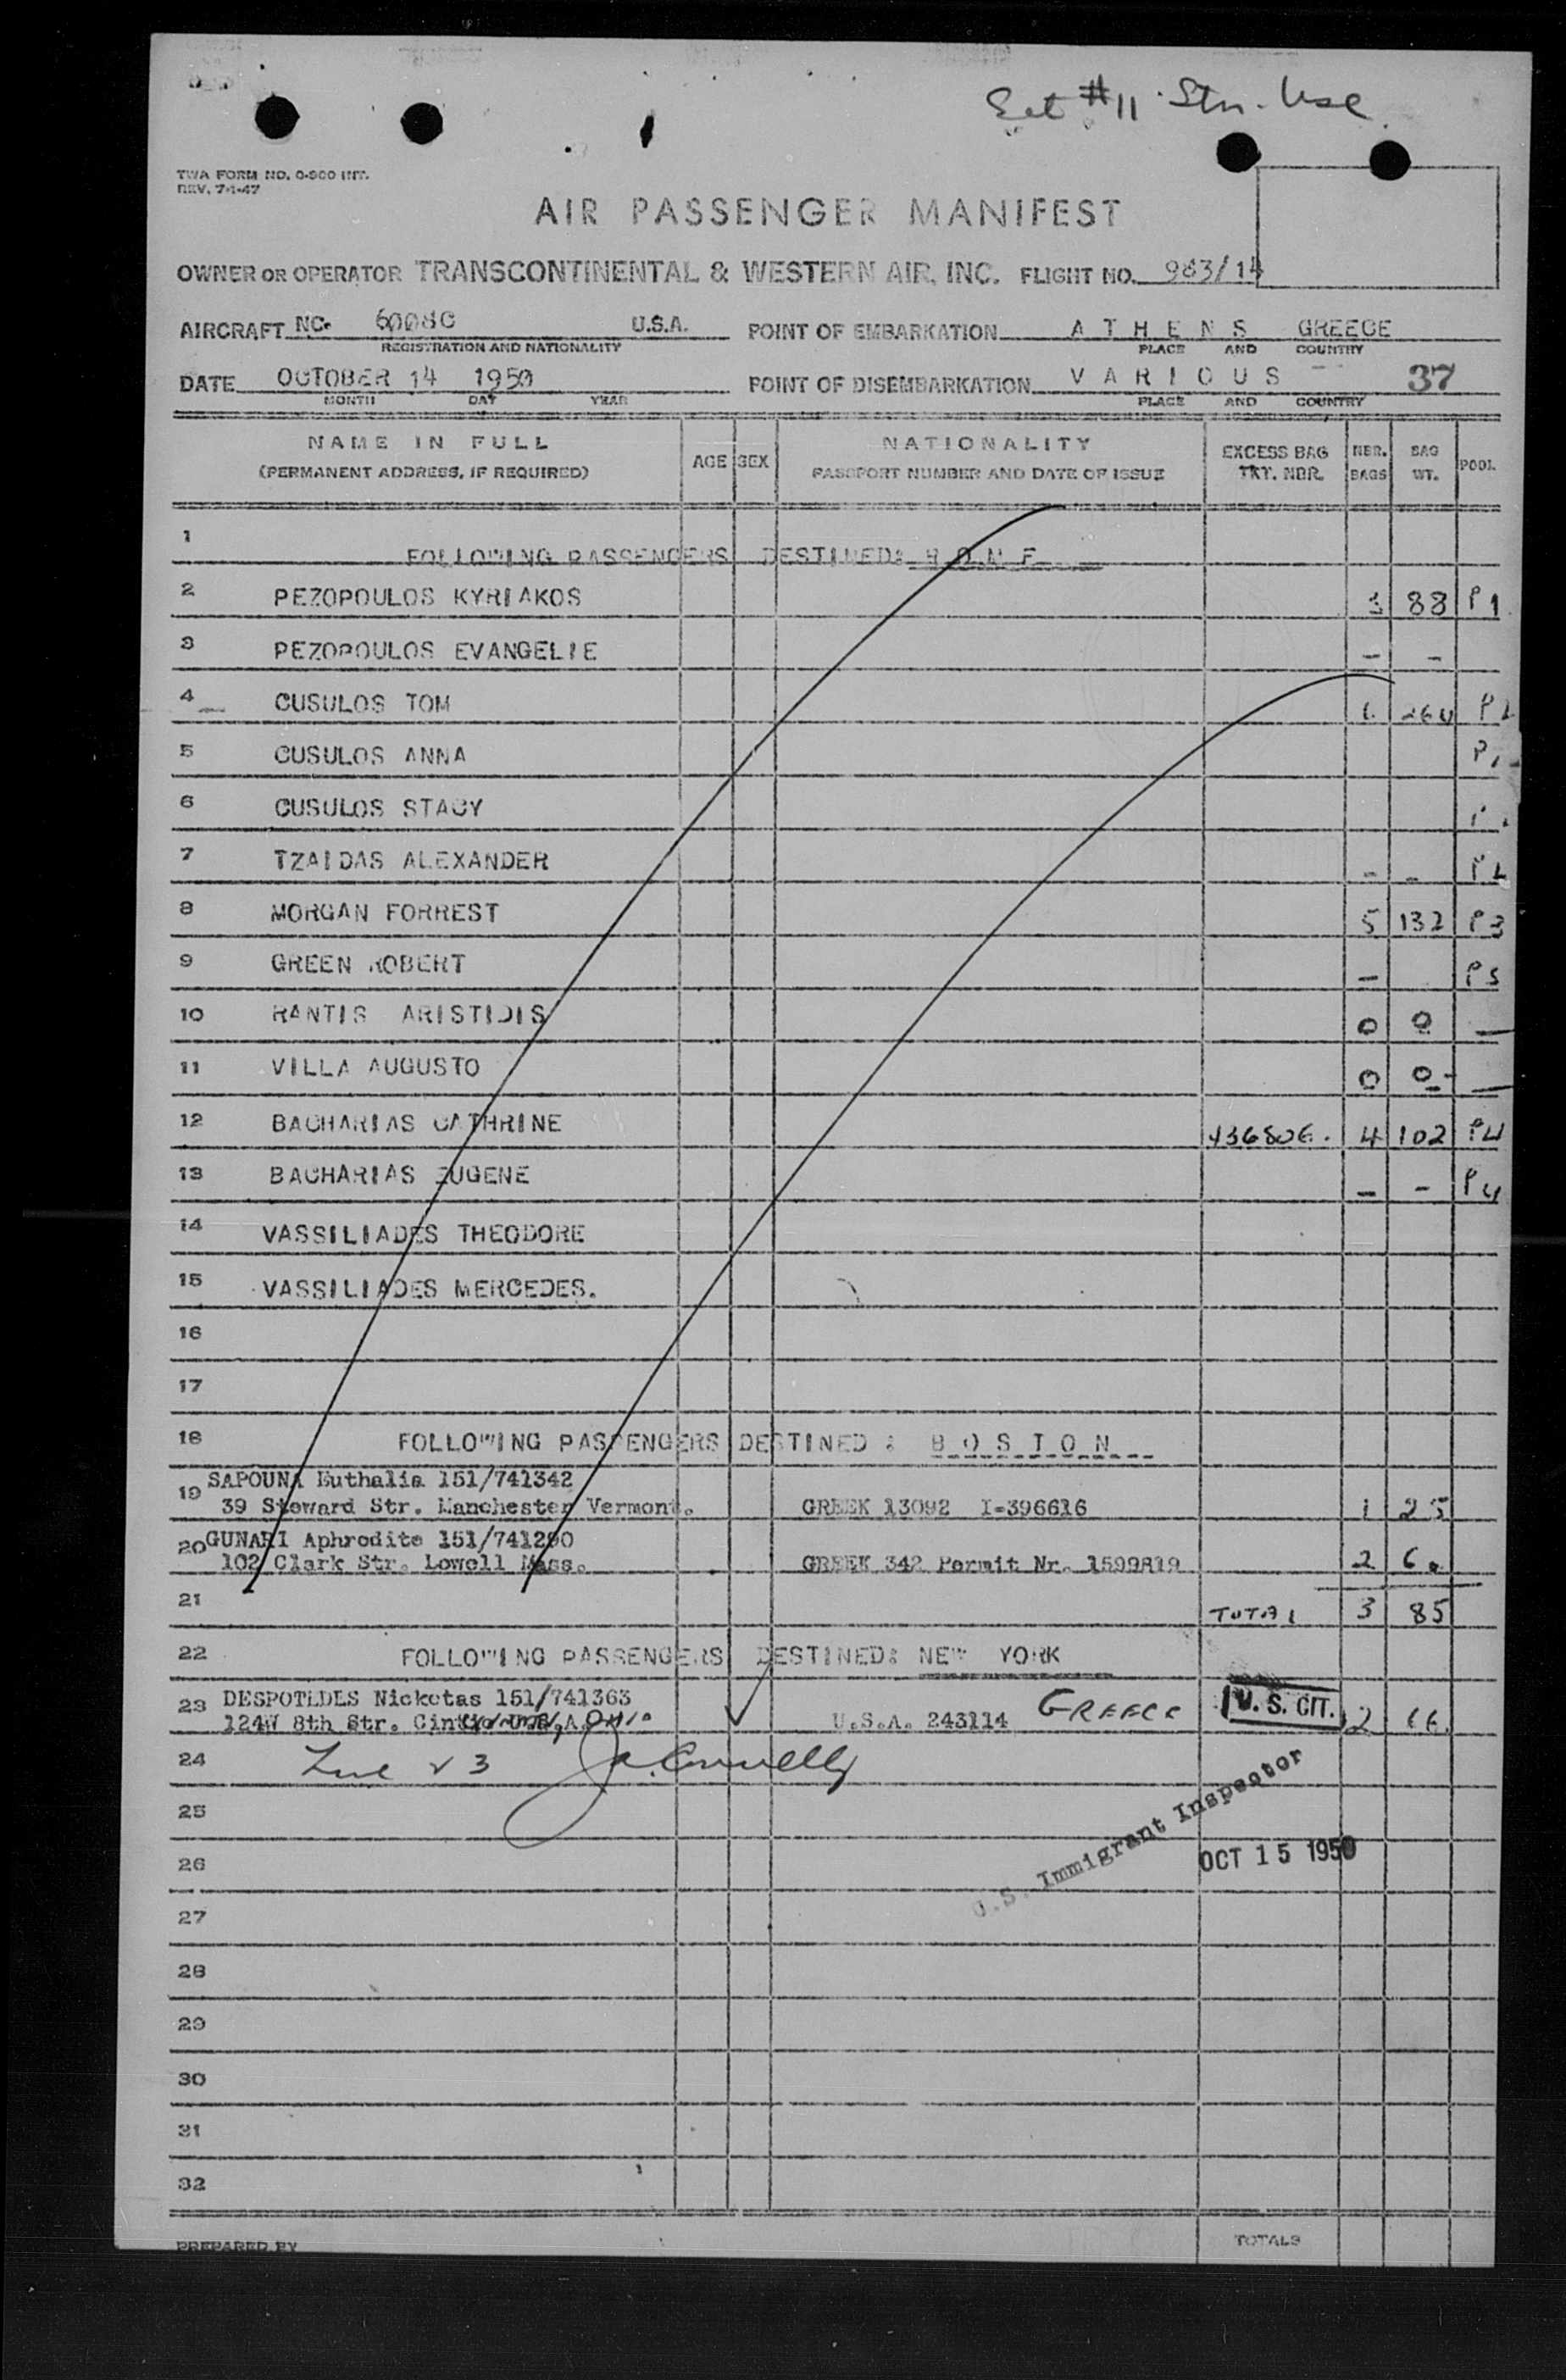 Set #11 Stn. Use
TWA FORM NO. 0-900 INT.
REV. 7-1-47
AIR PASSENGER MANIFEST
OWNER OR OPERATOR TRANSCONTINENTAL & WESTERN AIR, INC. FLIGHT NO. 963/14
AIRCRAFT NC. U.S.A. POINT OF EMBARKATION A T H E N S GREECE
REGISTRATION AND NATIONALITY PLACE AND COUNTRY
DATE OCTOBER 14 1950 POINT OF DISEMBARKATION V A R I O U S 37
MONTH DAY YEAR PLACE AND COUNTRY
NAME IN FULL (PERMANENT ADDRESS, IF REQUIRED) AGE SEX NATIONALITY PASSPORT NUMBER AND DATE OF ISSUE EXCESS BAG TKT. NBR. NBR. BAGS BAG WT. POOL
1 FOLLOWING PASSENGERS DESTINED: R O M E
2 PEZOPOULOS KYRIAKOS 3 88 P1
3 PEZOPOULOS EVANGELIE - -
4 CUSULOS TOM P2
5 CUSULOS ANNA
6 CUSULOS STACY
7 TZAIDAS ALEXANDER - - P2
8 MORGAN FORREST 5 132 P3
9 GREEN ROBERT -
10 RANTIS ARISTIDIS 0 0 -
11 VILLA AUGUSTO 0 0 -
12 BACHARIAS CATHRINE 4 102 P4
13 BACHARIAS EUGENE - - P4
14 VASSILIADES THEODORE
15 VASSILIADES MERCEDES.
16
17
18 FOLLOWING PASSENGERS DESTINED : B O S T O N
SAPOUNA Euthalia 151/741342
19 39 Steward Str. Manchester Vermont. GREEK 13092 I-396616 1 25
20 GUNARI Aphrodite 151/741290
102 Clark Str. Lowell Mass. GREEK 342 Permit Nr. 1599819 2 60
21 TOTAL 3 85
22 FOLLOWING PASSENGERS DESTINED: NEW YORK
23 DESPOTEDES Nicketas 151/741363
124W 8th Str. OHIO U.S.A. 243114 GREECE U. S. CIT. 2 66
24 Line 23
25
U.S. Immigrant Inspector
26 OCT 15 1950
27
28
29
30
31
32
PREPARED BY TOTALS